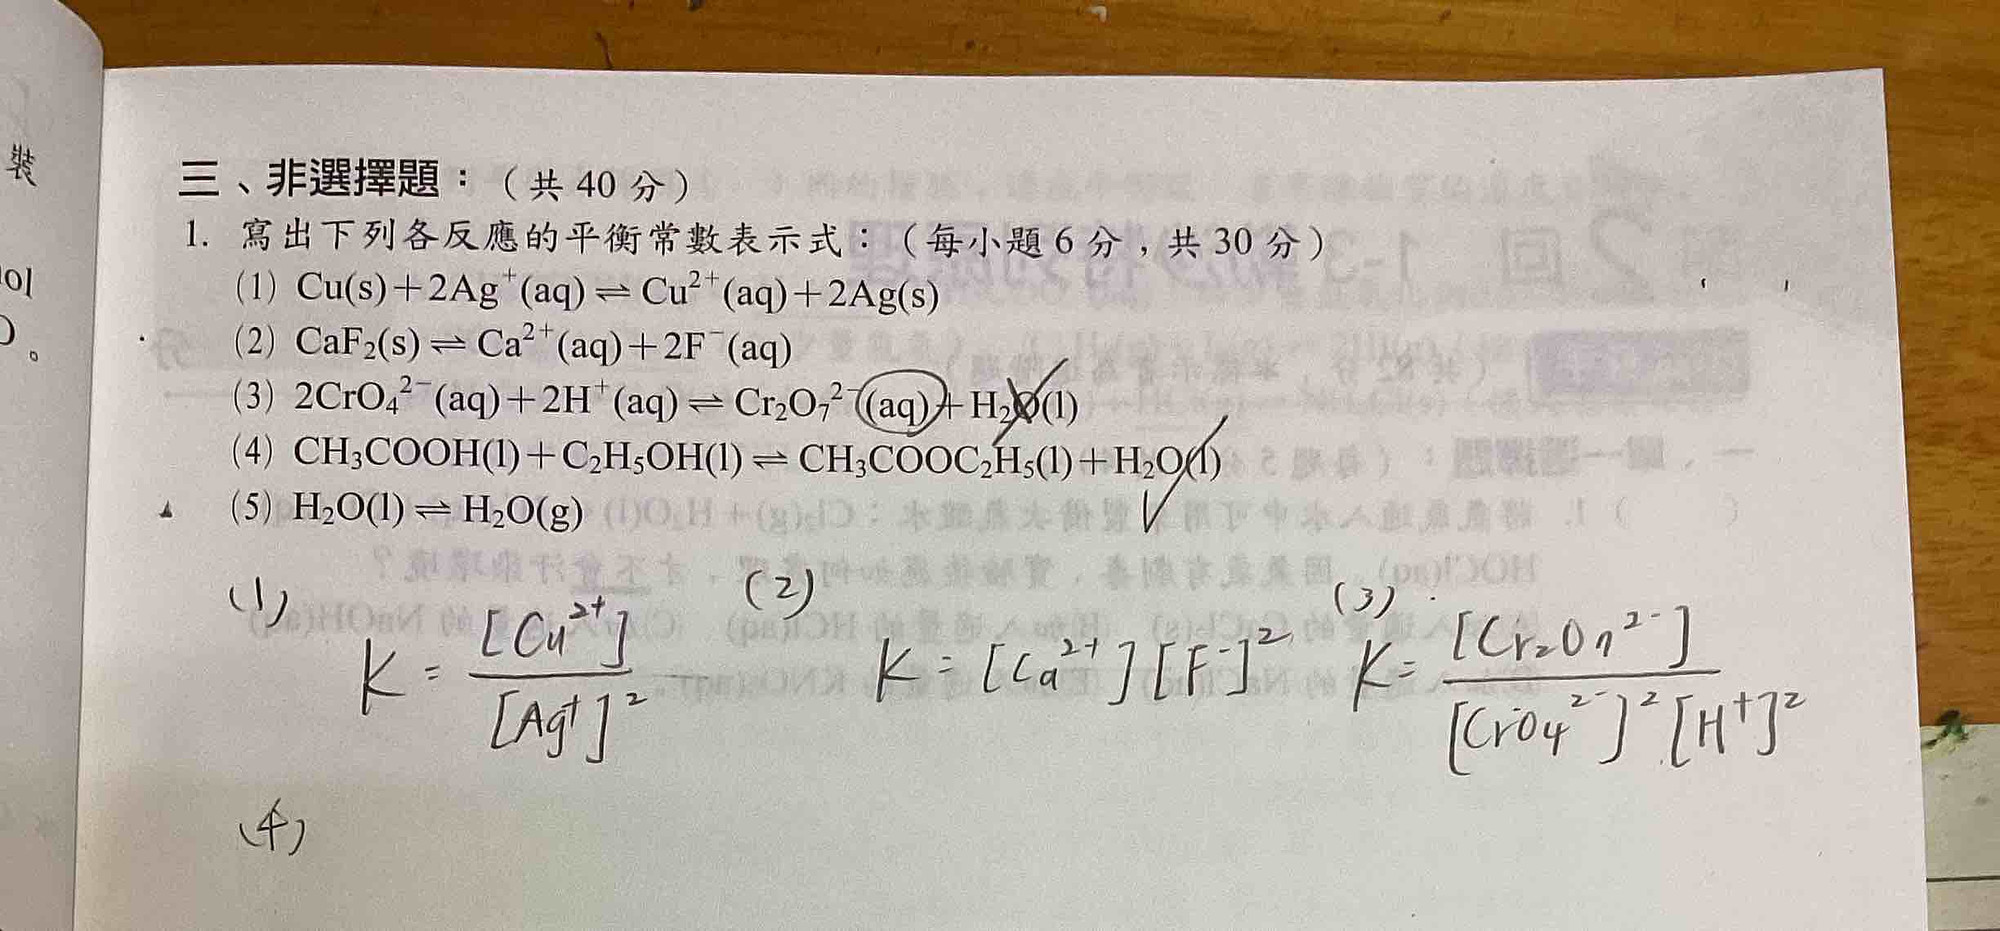 裝
三、非選擇題：（共 40 分）
1. 寫出下列各反應的平衡常數表示式：（每小題 6 分，共 30 分）
(1) Cu(s)+2Ag⁺(aq)⇌Cu²⁺(aq)+2Ag(s)
(2) CaF₂(s)⇌Ca²⁺(aq)+2F⁻(aq)
(3) 2CrO₄²⁻(aq)+2H⁺(aq)⇌Cr₂O₇²⁻(aq)+H₂O(l)
(4) CH₃COOH(l)+C₂H₅OH(l)⇌CH₃COOC₂H₅(l)+H₂O(l)
(5) H₂O(l)⇌H₂O(g)
(1) K = [Cu²⁺] / [Ag⁺]²
(2) K = [Ca²⁺][F⁻]²
(3) K = [Cr₂O₇²⁻] / [CrO₄²⁻]²[H⁺]²
(4)